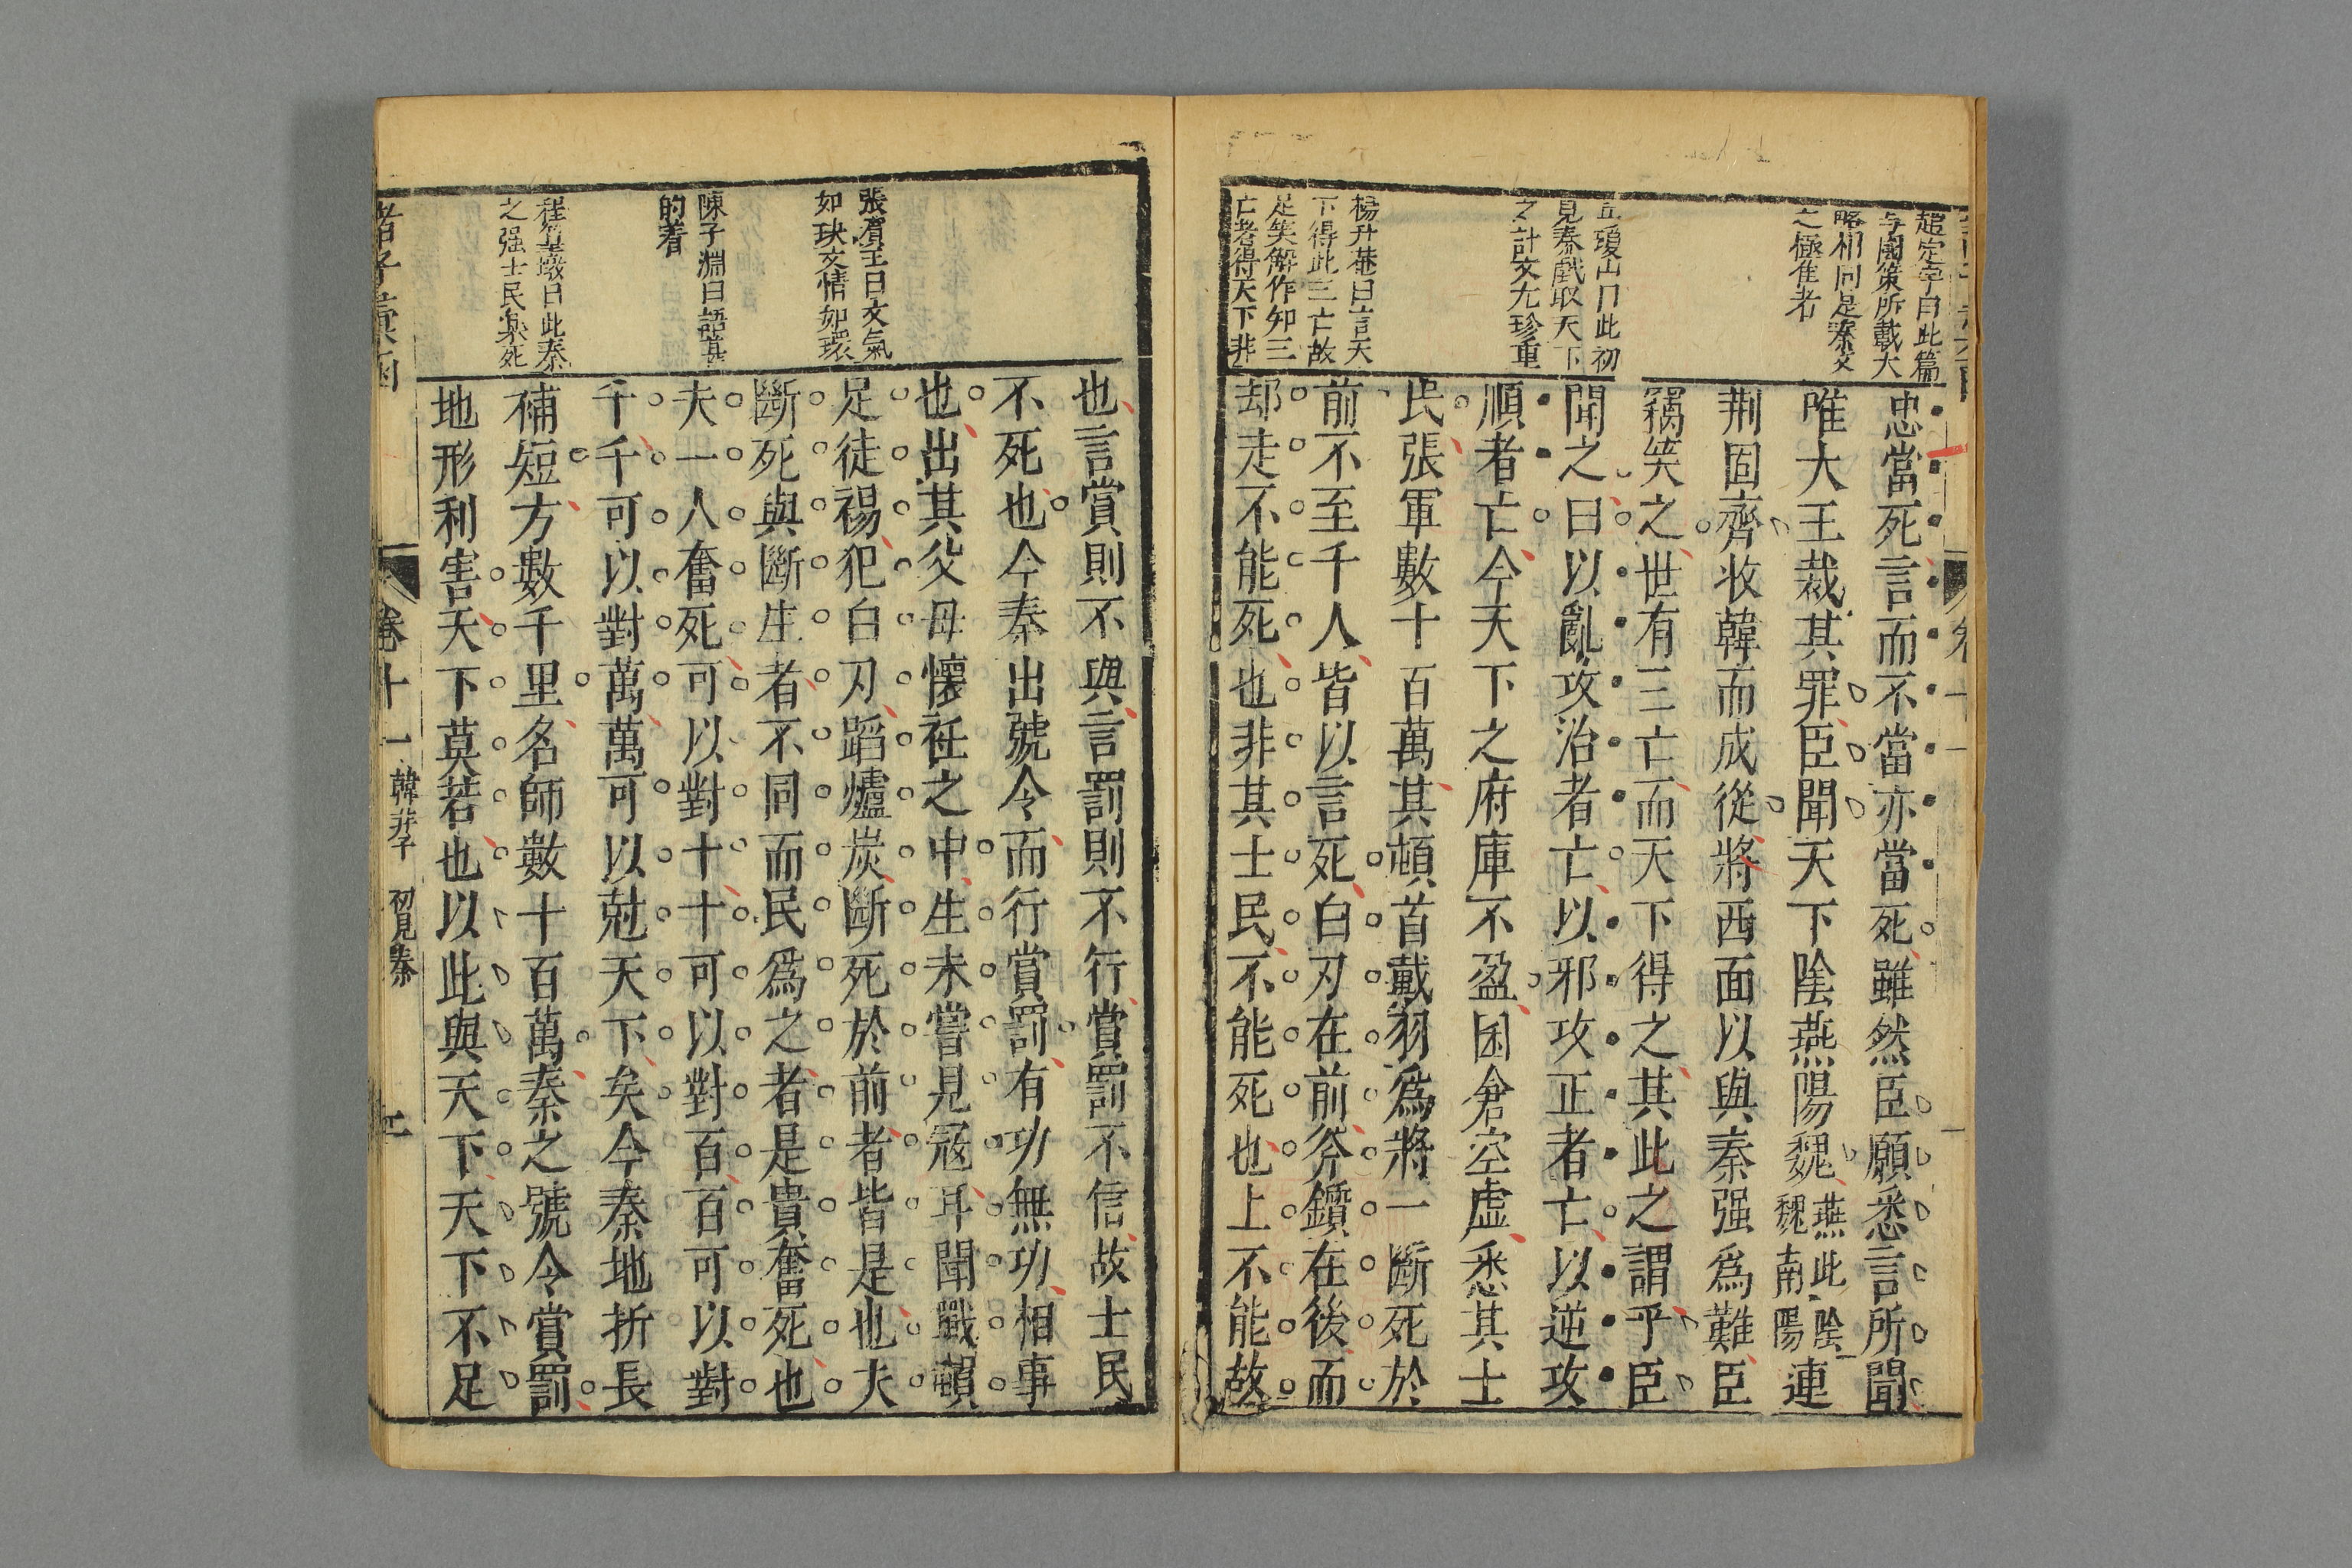 趙定宇曰此篇
與國策所載大
略相同是秦文
之極佳者
丘瓊山曰此初
見秦戲取天下
之計文尤珍重
楊升菴曰言天
下得此三亡故
足笑解作知三
亡者得天下非
忠當死言而不當亦當死雖然臣願悉言所聞
唯大王裁其罪臣聞天下陰燕陽魏燕此陰魏南陽連
荆固齊收韓而成從將西面以與秦强爲難臣
竊笑之世有三亡而天下得之其此之謂乎臣
聞之曰以亂攻治者亡以邪攻正者亡以逆攻
順者亡今天下之府庫不盈囷倉空虛悉其士
民張軍數十百萬其頓首戴羽爲將一斷死於
前不至千人皆以言死白刃在前斧鑕在後而
却走不能死也非其士民不能死也上不能故
張賓王曰文氣
如玦文情如環
陳子淵曰語眞
的着
程篁墩曰此秦
之强士民氣死
也言賞則不與言罰則不行賞罰不信故士民
不死也今秦出號令而行賞罰有功無功相事
也出其父母懷衽之中生未嘗見寇耳聞戰頓
足徒裼犯白刃蹈爐炭斷死於前者皆是也夫
斷死與斷生者不同而民爲之者是貴奮死也
夫一人奮死可以對十十可以對百百可以對
千千可以對萬萬可以尅天下矣今秦地折長
補短方數千里名師數十百萬秦之號令賞罰
地形利害天下莫若也以此與天下天下不足
諸子彙函 卷十一 韓非子 初見秦 二